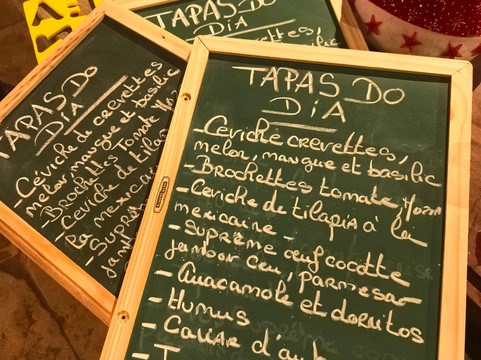 TAPAS DO
DIA
- Ceviche crevettes,
melon, mangue et basilic
- Brochettes tomate,
- Ceviche de tilapia à la
mexicaine -
- Suprême œuf cocotte
jambon cru, parmesan
- Guacamole et doritos
- Humus
- Caviar d'au
TAPAS DO
DIA
- Céviche de crevettes
melon, mangue et basilic
- Brochettes Tomate
- Ceviche de tila
mexicai
- Suprê
jam
TAPAS DO
DIA